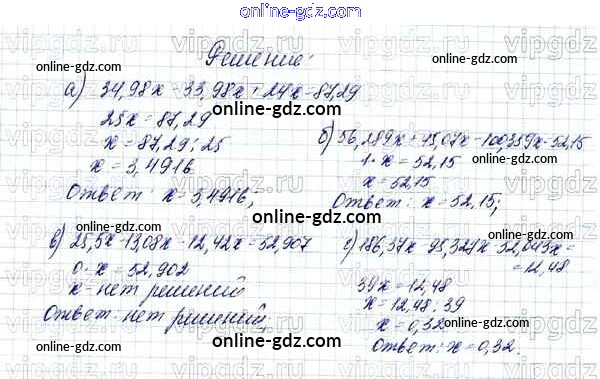 online-gdz.com
Решение:
а) 34,98x - 33,98x + 24x = 87,29
25x = 87,29
x = 87,29 : 25
x = 3,4916
Ответ: x = 3,4916;
б) 56,289x + 45,07x - 100,359x = 52,15
1 · x = 52,15
x = 52,15
Ответ: x = 52,15;
в) 25,5x - 13,08x - 12,42x = 52,907
0 · x = 52,902
x - нет решений
Ответ: нет решений;
г) 186,37x - 95,327x - 52,043x =
= 12,48
39x = 12,48
x = 12,48 : 39
x = 0,32
Ответ: x = 0,32.
online-gdz.com
online-gdz.com
online-gdz.com
online-gdz.com
online-gdz.com
online-gdz.com
online-gdz.com
online-gdz.com
online-gdz.com
online-gdz.com